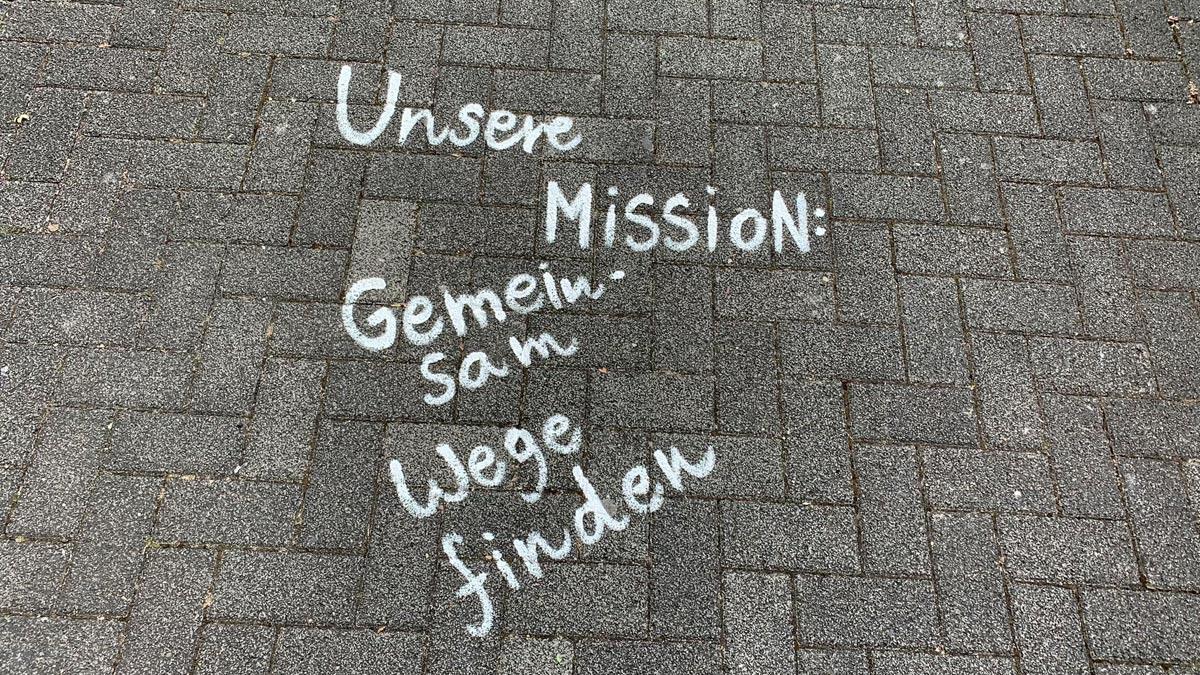 Unsere
Mission:
Gemein-
sam
Wege
finden